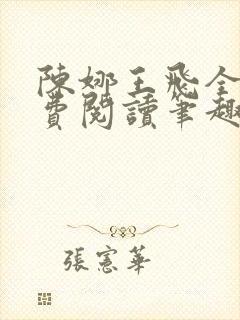 陳娜王飛全
費閱讀筆趣
張憲華